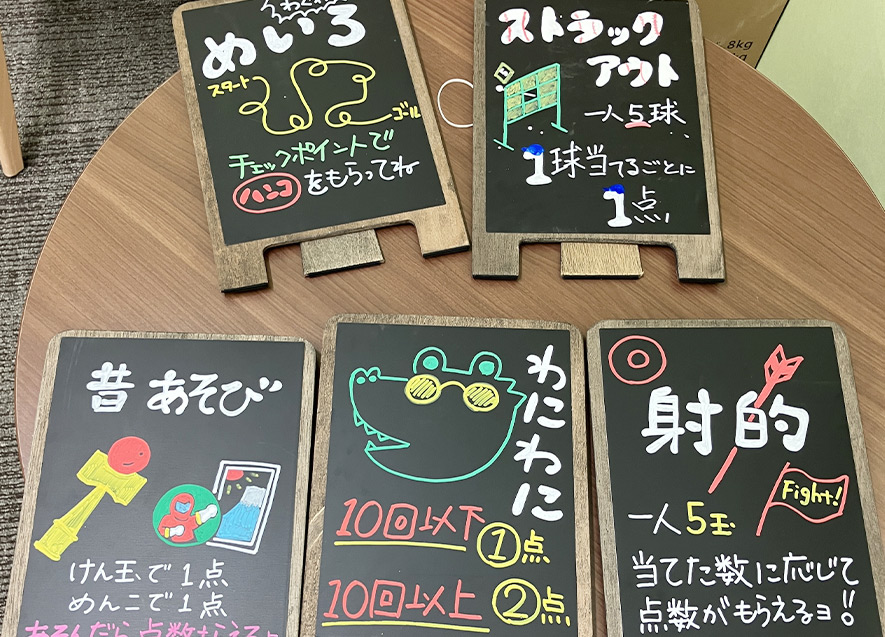 めいろ
スタート
ゴール
チェックポイントで
ハンコをもらってね
ストラック
アウト
一人5球
1球当てるごとに
1点
8kg
昔あそび
けん玉で1点
めんこで1点
わにわに
10回以下①点
10回以上②点
射的
Fight!
一人5玉
当てた数に応じて
点数がもらえるヨ!!